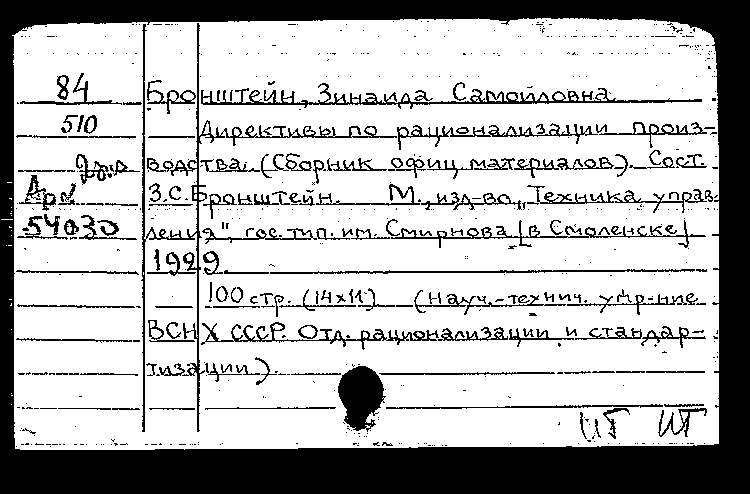 84 Бронштейн, Зинаида Самойловна
510 Директивы по рационализации произ-
2 экз водства. (Сборник офиц. материалов). Сост.
Арх З.С.Бронштейн. М., изд-во „Техника управ-
54030 ления", гос. тип. им. Смирнова [в Смоленске]
1929.
100 стр. (14х11) (Науч.-технич. упр-ние
ВСНХ СССР. Отд. рационализации и стандар-
тизации).
ИТ ИТ